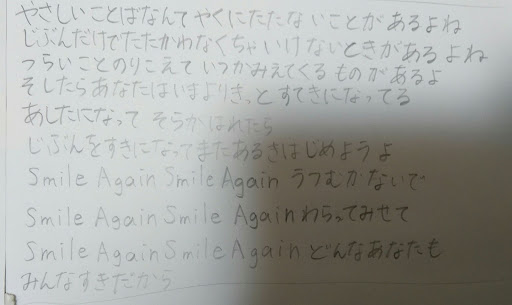 やさしいことばなんて やくにたたないことが あるよね
じぶんだけでたたかわなくちゃ いけないときが あるよね
つらいことのりこえて いつかみえてくる ものがあるよ
そしたらあなたはいまよりきっと すてきになってる
あしたになって そらがはれたら
じぶんをすきになってまたあるきはじめようよ
Smile Again Smile Again うつむかないで
Smile Again Smile Again わらってみせて
Smile Again Smile Again どんなあなたも
みんなすきだから